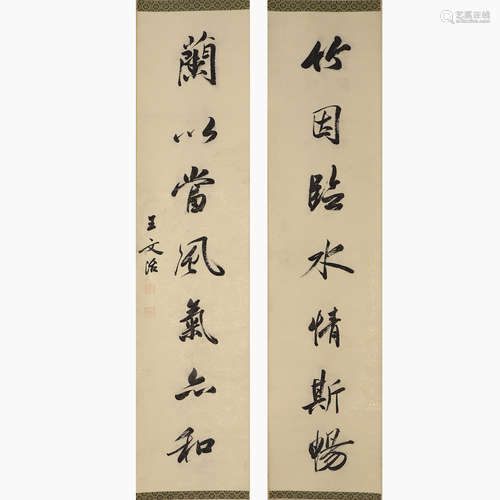 竹因臨水情斯暢
蘭以當風氣亦和
王文治
艺狐在线